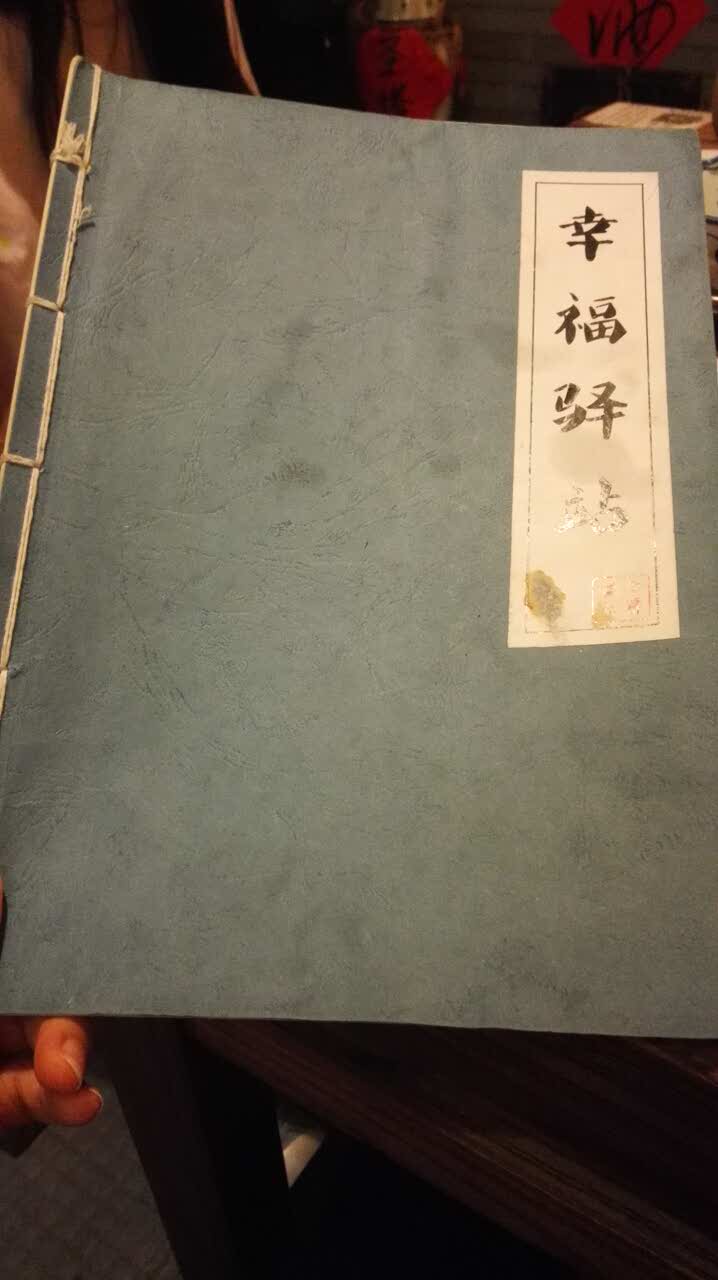 幸福驿站